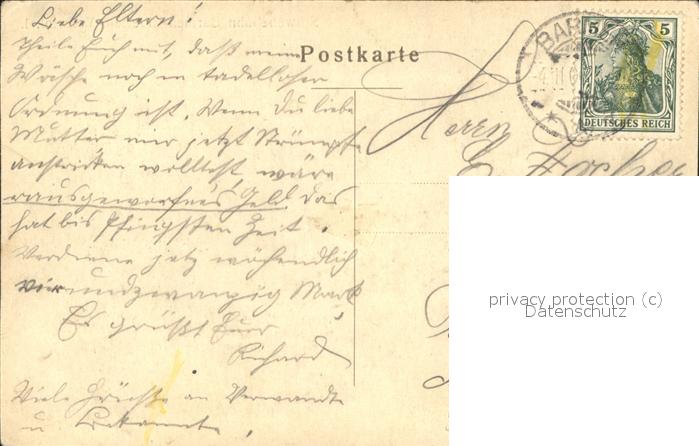 Liebe Eltern!
Theile Euch mit, daß meine
Wäsche noch in tadelloser
Ordnung ist. Wenn Du liebe
Mutter mir jetzt Strümpfe
anstricken wolltest, wäre
rausgeworfnes Geld. Das
hat bis Pfingsten Zeit.
Verdiene jetz wöchendlich
vierundzwanzig Mark
Es grüßt Euer
Richard
Viele Grüße an Verwandte
u. Bekannte.
Postkarte
Herrn
BAR
5 5
DEUTSCHES REICH
privacy protection (c)
Datenschutz